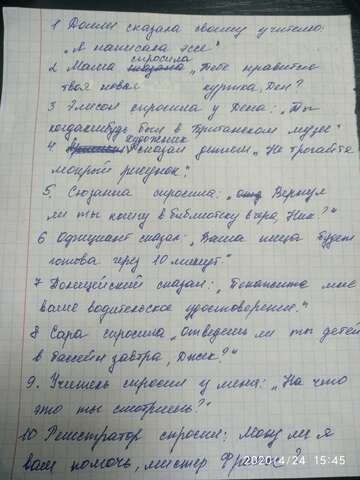 1 Долли сказала своему учителю:
"Я написала эссе"
2 Мама спросила "Тебе нравится
твоя новая куртка, Ден?
3 Элисон спросила у Дена: "Ты
когда-нибудь был в Британском музее"
4 художник сказал детям "Не трогайте
мокрый рисунок"
5. Сюзанна спросила: "Вернул
ли ты книгу в библиотеку вчера, Ник?"
6 Официант сказал: "Ваша пицца будет
готова через 10 минут."
7 Полицейский сказал: "Покажите мне
ваше водительское удостоверение."
8 Сара спросила "отведешь ли ты детей
в бассейн завтра, Джек?"
9. Учитель спросил у меня: "На что
это ты смотришь?"
10 Регистратор спросил: Могу ли я
вам помочь, мистер
2020/4/24 15:45